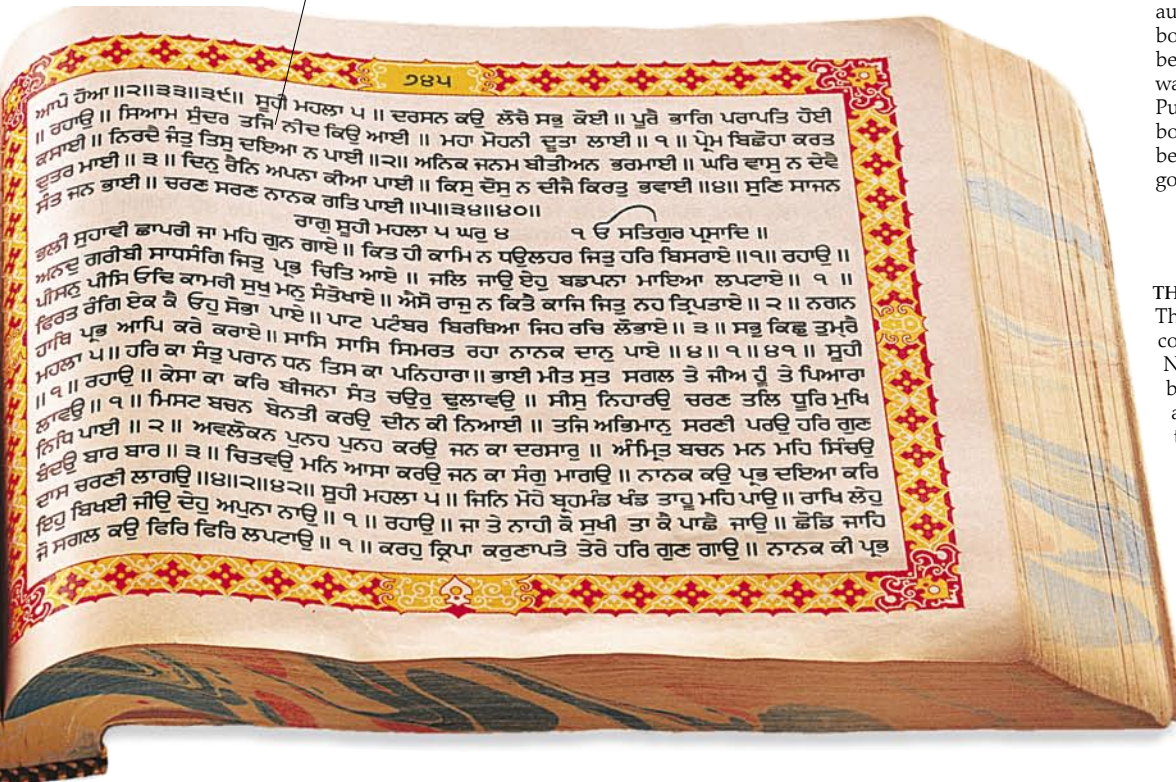 ੭੪੫
ਆਪੇ ਹੋਆ ॥੨॥੩੩॥੩੯॥ ਸੂਹੀ ਮਹਲਾ ੫ ॥ ਦਰਸਨ ਕਉ ਲੋਚੈ ਸਭੁ ਕੋਈ ॥ ਪੂਰੈ ਭਾਗਿ ਪਰਾਪਤਿ ਹੋਈ
॥ ਰਹਾਉ ॥ ਸਿਆਮ ਸੁੰਦਰ ਤਜਿ ਨੀਦ ਕਿਉ ਆਈ ॥ ਮਹਾ ਮੋਹਨੀ ਦੂਤਾ ਲਾਈ ॥ ੧ ॥ ਪ੍ਰੇਮ ਬਿਛੋਹਾ ਕਰਤ
ਕਸਾਈ ॥ ਨਿਰਦੈ ਜੰਤੁ ਤਿਸੁ ਦਇਆ ਨ ਪਾਈ ॥੨॥ ਅਨਿਕ ਜਨਮ ਬੀਤੀਅਨ ਭਰਮਾਈ ॥ ਘਰਿ ਵਾਸੁ ਨ ਦੇਵੈ
ਦੁਤਰ ਮਾਈ ॥ ੩ ॥ ਦਿਨੁ ਰੈਨਿ ਅਪਨਾ ਕੀਆ ਪਾਈ ॥ ਕਿਸੁ ਦੋਸੁ ਨ ਦੀਜੈ ਕਿਰਤੁ ਭਵਾਈ ॥੪॥ ਸੁਣਿ ਸਾਜਨ
ਸੰਤ ਜਨ ਭਾਈ ॥ ਚਰਣ ਸਰਣ ਨਾਨਕ ਗਤਿ ਪਾਈ ॥੫॥੩੪॥੪੦॥
ਰਾਗੁ ਸੂਹੀ ਮਹਲਾ ੫ ਘਰੁ ੪ ੴ ਸਤਿਗੁਰ ਪ੍ਰਸਾਦਿ ॥
ਭਲੀ ਸੁਹਾਵੀ ਛਾਪਰੀ ਜਾ ਮਹਿ ਗੁਨ ਗਾਏ ॥ ਕਿਤ ਹੀ ਕਾਮਿ ਨ ਧਉਲਹਰ ਜਿਤੁ ਹਰਿ ਬਿਸਰਾਏ ॥੧॥ ਰਹਾਉ ॥
ਅਨਦੁ ਗਰੀਬੀ ਸਾਧਸੰਗਿ ਜਿਤੁ ਪ੍ਰਭ ਚਿਤਿ ਆਏ ॥ ਜਲਿ ਜਾਉ ਏਹੁ ਬਡਪਨਾ ਮਾਇਆ ਲਪਟਾਏ ॥ ੧ ॥
ਪੀਸਨੁ ਪੀਸਿ ਓਢਿ ਕਾਮਰੀ ਸੁਖੁ ਮਨੁ ਸੰਤੋਖਾਏ ॥ ਐਸੋ ਰਾਜੁ ਨ ਕਿਤੈ ਕਾਜਿ ਜਿਤੁ ਨਹ ਤ੍ਰਿਪਤਾਏ ॥ ੨ ॥ ਨਗਨ
ਫਿਰਤ ਰੰਗਿ ਏਕ ਕੈ ਓਹੁ ਸੋਭਾ ਪਾਏ ॥ ਪਾਟ ਪਟੰਬਰ ਬਿਰਥਿਆ ਜਿਹ ਰਚਿ ਲੋਭਾਏ ॥ ੩ ॥ ਸਭੁ ਕਿਛੁ ਤੁਮ੍ਹਰੈ
ਹਾਥਿ ਪ੍ਰਭ ਆਪਿ ਕਰੇ ਕਰਾਏ ॥ ਸਾਸਿ ਸਾਸਿ ਸਿਮਰਤ ਰਹਾ ਨਾਨਕ ਦਾਨੁ ਪਾਏ ॥ ੪ ॥ ੧ ॥ ੪੧ ॥ ਸੂਹੀ
ਮਹਲਾ ੫ ॥ ਹਰਿ ਕਾ ਸੰਤੁ ਪਰਾਨ ਧਨ ਤਿਸ ਕਾ ਪਨਿਹਾਰਾ ॥ ਭਾਈ ਮੀਤ ਸੁਤ ਸਗਲ ਤੇ ਜੀਅ ਹੂੰ ਤੇ ਪਿਆਰਾ
॥ ੧ ॥ ਰਹਾਉ ॥ ਕੇਸਾ ਕਾ ਕਰਿ ਬੀਜਨਾ ਸੰਤ ਚਉਰੁ ਢੁਲਾਵਉ ॥ ਸੀਸੁ ਨਿਹਾਰਉ ਚਰਣ ਤਲਿ ਧੂਰਿ ਮੁਖਿ
ਲਾਵਉ ॥ ੧ ॥ ਮਿਸਟ ਬਚਨ ਬੇਨਤੀ ਕਰਉ ਦੀਨ ਕੀ ਨਿਆਈ ॥ ਤਜਿ ਅਭਿਮਾਨੁ ਸਰਣੀ ਪਰਉ ਹਰਿ ਗੁਣ
ਨਿਧਿ ਪਾਈ ॥ ੨ ॥ ਅਵਲੋਕਨ ਪੁਨਹ ਪੁਨਹ ਕਰਉ ਜਨ ਕਾ ਦਰਸਾਰੁ ॥ ਅੰਮ੍ਰਿਤ ਬਚਨ ਮਨ ਮਹਿ ਸਿੰਚਉ
ਬੰਦਉ ਬਾਰ ਬਾਰ ॥ ੩ ॥ ਚਿਤਵਉ ਮਨਿ ਆਸਾ ਕਰਉ ਜਨ ਕਾ ਸੰਗੁ ਮਾਗਉ ॥ ਨਾਨਕ ਕਉ ਪ੍ਰਭ ਦਇਆ ਕਰਿ
ਦਾਸ ਚਰਣੀ ਲਾਗਉ ॥੪॥੨॥੪੨॥ ਸੂਹੀ ਮਹਲਾ ੫ ॥ ਜਿਨਿ ਮੋਹੇ ਬ੍ਰਹਮੰਡ ਖੰਡ ਤਾਹੂ ਮਹਿ ਪਾਉ ॥ ਰਾਖਿ ਲੇਹੁ
ਇਹੁ ਬਿਖਈ ਜੀਉ ਦੇਹੁ ਅਪੁਨਾ ਨਾਉ ॥ ੧ ॥ ਰਹਾਉ ॥ ਜਾ ਤੇ ਨਾਹੀ ਕੋ ਸੁਖੀ ਤਾ ਕੈ ਪਾਛੈ ਜਾਉ ॥ ਛੋਡਿ ਜਾਹਿ
ਜੋ ਸਗਲ ਕਉ ਫਿਰਿ ਫਿਰਿ ਲਪਟਾਉ ॥ ੧ ॥ ਕਰਹੁ ਕ੍ਰਿਪਾ ਕਰੁਣਾਪਤੇ ਤੇਰੇ ਹਰਿ ਗੁਣ ਗਾਉ ॥ ਨਾਨਕ ਕੀ ਪ੍ਰਭ